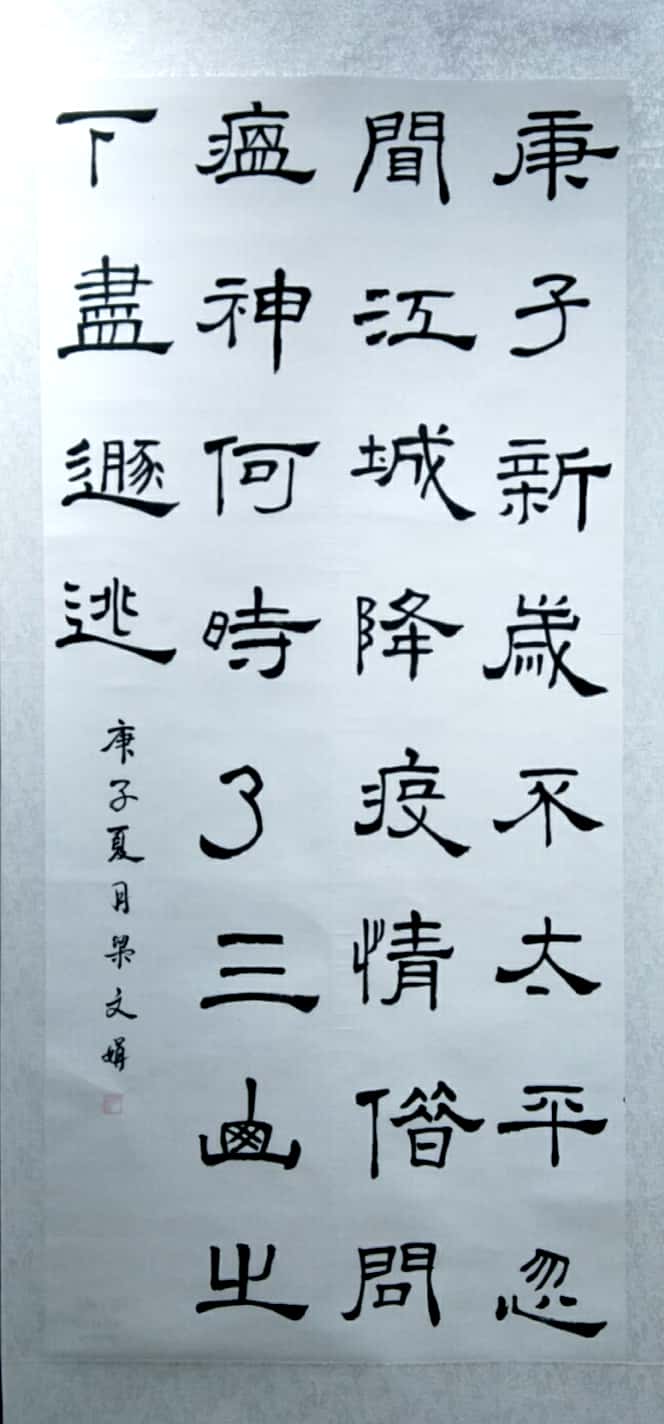 庚子新歲不太平忽
聞江城降疫情借問
瘟神何時了三之
下盡遯逃
庚子夏月梁文娟